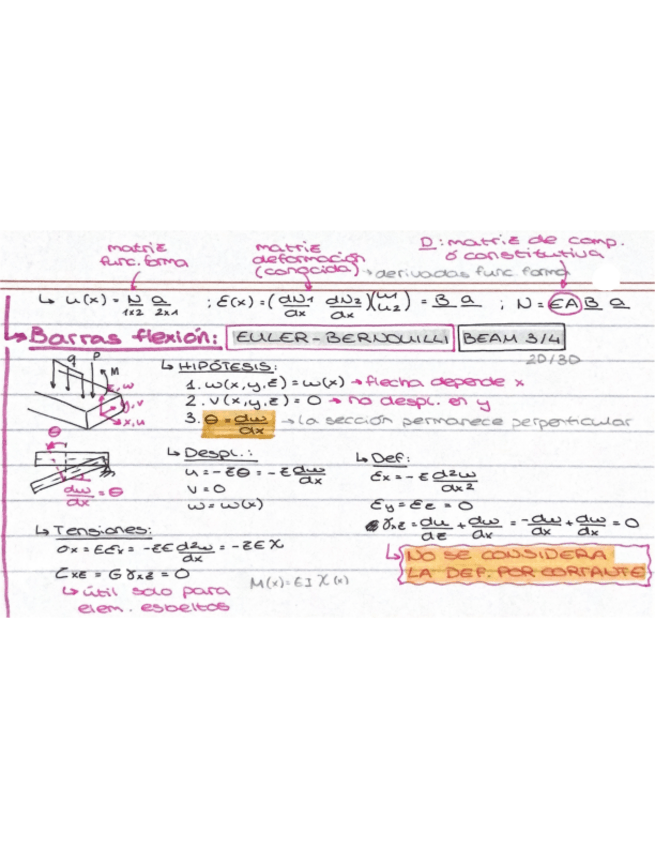 matriz func. forma
matriz deformación (conocida) → derivadas func. forma
D: matriz de comp. ó constitutiva
↳ u(x) = N a ; ε(x) = (dN1/dx dN2/dx)(u1 u2) = B a ; N = EA B a
1x2 2x1
↳ Barras flexión: EULER-BERNOUILLI BEAM 3/4
2D/3D
q P M
z, w
y, v
x, u
↳ HIPÓTESIS:
1. w(x,y,z) = w(x) → flecha depende x
2. v(x,y,z) = 0 → no despl. en y
3. θ = dw/dx → la sección permanece perpenticular
θ
dw/dx = θ
↳ Despl.:
u = -zθ = -z dw/dx
v = 0
w = w(x)
↳ Def:
εx = -z d2w/dx2
εy = εz = 0
γxz = du/dz + dw/dx = -dw/dx + dw/dx = 0
↳ NO SE CONSIDERA
LA DEF. POR CORTANTE
↳ Tensiones:
σx = Eεx = -zE d2w/dx = -zEχ
τxz = Gγxz = 0
↳ útil solo para
elem. esbeltos
M(x) = EI χ(x)